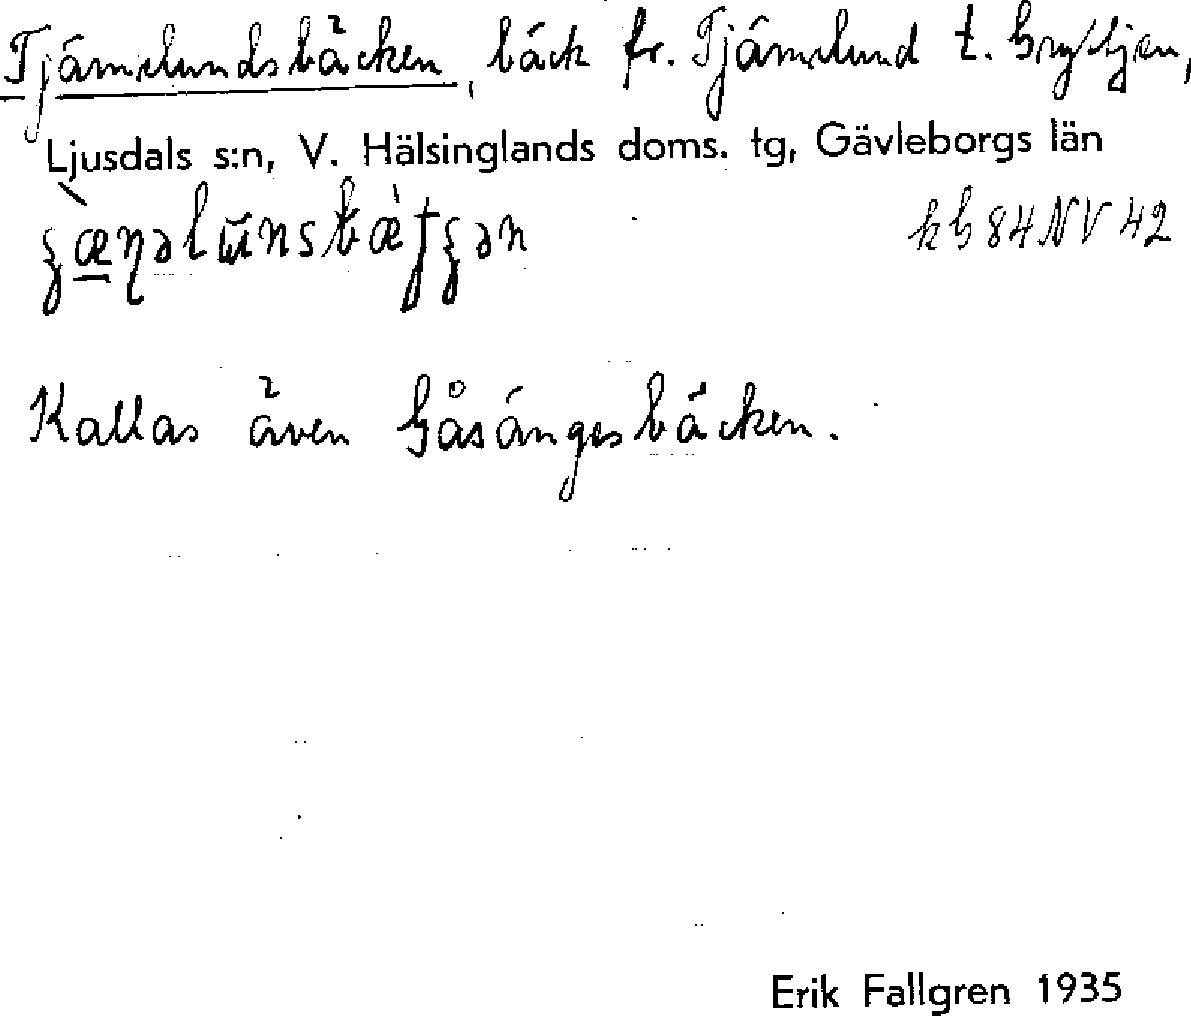 Tjärnelundsbäcken, bäck fr. Tjärnelund t. Gryttjen,
Ljusdals s:n, V. Hälsinglands doms. tg, Gävleborgs län
kb 84 NV 42
Kallas även Gåsängesbäcken.
Erik Fallgren 1935